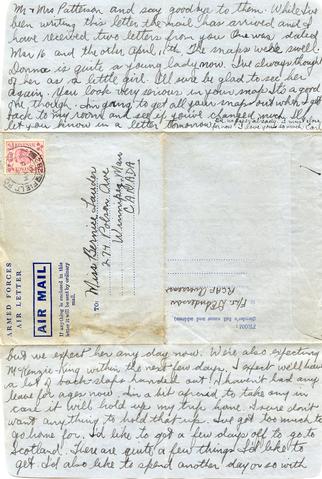 Mr & Mrs Patterson and say good bye to them. While I've
been writing this letter the mail has arrived and I
have received two letters from you One was dated
Mar 16 and the other April 11th The snaps were swell.
Donna is quite a young lady now. I've always thought
of her as a little girl. I'll sure be glad to see her
again. You look very serious in your snap. It's a good
one though. I'm going to get all your snaps out when I get
back to my room and see if you've changed much. I'll
let you know in a letter tomorrow.
for now I love you so much
FIELD PO
ARMED FORCES
AIR LETTER
AIR MAIL
If anything is enclosed in this
letter it will be sent by ordinary
mail.
TO:
Miss Bernice
274 Polson Ave
Winnipeg, Man
CANADA
FROM:
(Sender's full name and address)
RCAF Overseas
but we expect her any day now. We're also expecting
McKenzie King within the next few days. I expect we'll have
a lot of back slaps handed out. I haven't had any
leave for ages now. I'm a bit afraid to take any in
case it will hold up my trip home. I sure don't
want anything to hold that up. I've got too much to
go home for. I'd like to get a few days off to go to
Scotland. There are quite a few things I'd like to
get. I'd also like to spend another day or so with